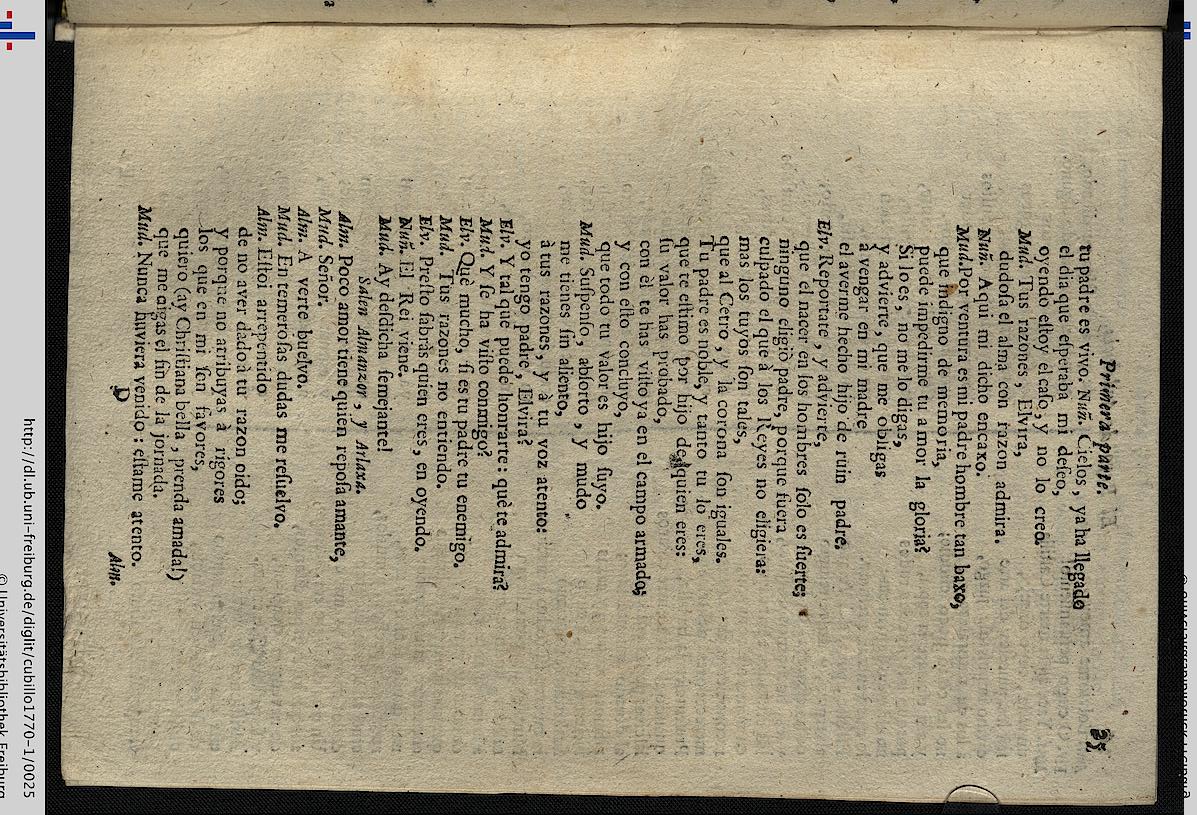 Primera parte. 25
tu padre es vivo. Nuñ. Cielos, ya ha llegado
el dia que eſperaba mi deſeo,
oyendo eſtoy el caſo, y no lo creo.
Mud. Tus razones, Elvira,
dudoſa el alma con razon admira.
Nuñ. Aqui mi dicho encaxo.
Mud. Por ventura es mi padre hombre tan baxo,
que indigno de memoria,
puede impedirme tu amor la gloria?
Si lo es, no me lo digas,
y advierte, que me obligas
à vengar en mi madre
el averme hecho hijo de ruin padre.
Elv. Reportate, y advierte,
que el nacer en los hombres ſolo es ſuerte;
ninguno eligiò padre, porque fuera
culpado el que à los Reyes no eligiera:
mas los tuyos ſon tales,
que al Cetro, y la corona ſon iguales.
Tu padre es noble, y tanto tu lo eres,
que te eſtimo por hijo de quien eres:
ſu valor has probado,
con èl te has viſto ya en el campo armado;
y con eſto concluyo,
que todo tu valor es hijo ſuyo.
Mud. Suſpenſo, abſorto, y mudo
me tienes ſin aliento,
à tus razones, y à tu voz atento:
yo tengo padre, Elvira?
Elv. Y tal que puede honrarte: què te admira?
Mud. Y ſe ha viſto conmigo?
Elv. Què mucho, ſi es tu padre tu enemigo.
Mud. Tus razones no entiendo.
Elv. Preſto ſabràs quien eres, en oyendo.
Nuñ. El Rei viene.
Mud. Ay deſdicha ſemejante!
Salen Almanzor, y Arlaxa.
Alm. Poco amor tiene quien repoſa amante,
Mud. Señor.
Alm. A verte buelvo.
Mud. En temeroſas dudas me reſuelvo.
Alm. Eſtoi arrepentido
de no aver dado à tu razon oido;
y porque no atribuyas à rigores
los que en mi ſen favores,
quiero (ay Chriſtiana bella, prenda amada!)
que me digas el fin de la jornada.
Mud. Nunca huviera venido: eſtame atento.
D Alm.
http://dl.ub.uni-freiburg.de/diglit/cubillo1770-1/0025
© Universitätsbibliothek Freiburg